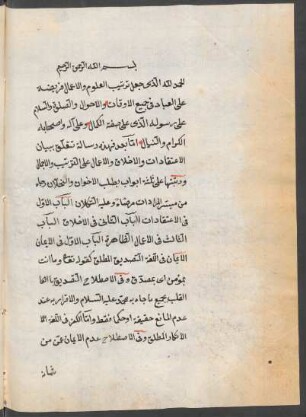 بسم الله الرحمن الرحيم
الحمد لله الذى جعل ترتيب العلوم والاعمال فريضة
على العباد فى جميع الاوقات والاحوال والصلوة والسلام
على رسوله الذى على صفة الكمال وعلى آله واصحابه
الكرام والشمال اما بعد فهذه رسالة تتعلق ببيان
الاعتقادات والاخلاق والاعمال على الترتيب والاجمال
ورتبتها على ثلثة ابواب بطلب الاخوان والخلان رجاء
من مبدء الجادات مرضاة وعليه التكلان الباب الاول
فى الاعتقادات الباب الثانى فى الاخلاق الباب
الثالث فى الاعمال الظاهرة الباب الاول فى الايمان
الايمان فى اللغة التصديق المطلق لقوله تعالى وما انت
بمؤمن اى بمصدق وفى الاصطلاح التصديق
القلب بجميع ما جاء به محمد عليه السلام والاقرار به عند
عدم المانع حقيقة او حكما فقط واما الكفر فى اللغة
الانكار المطلق وفى الاصطلاح عدم الايمان عمن من
شانه